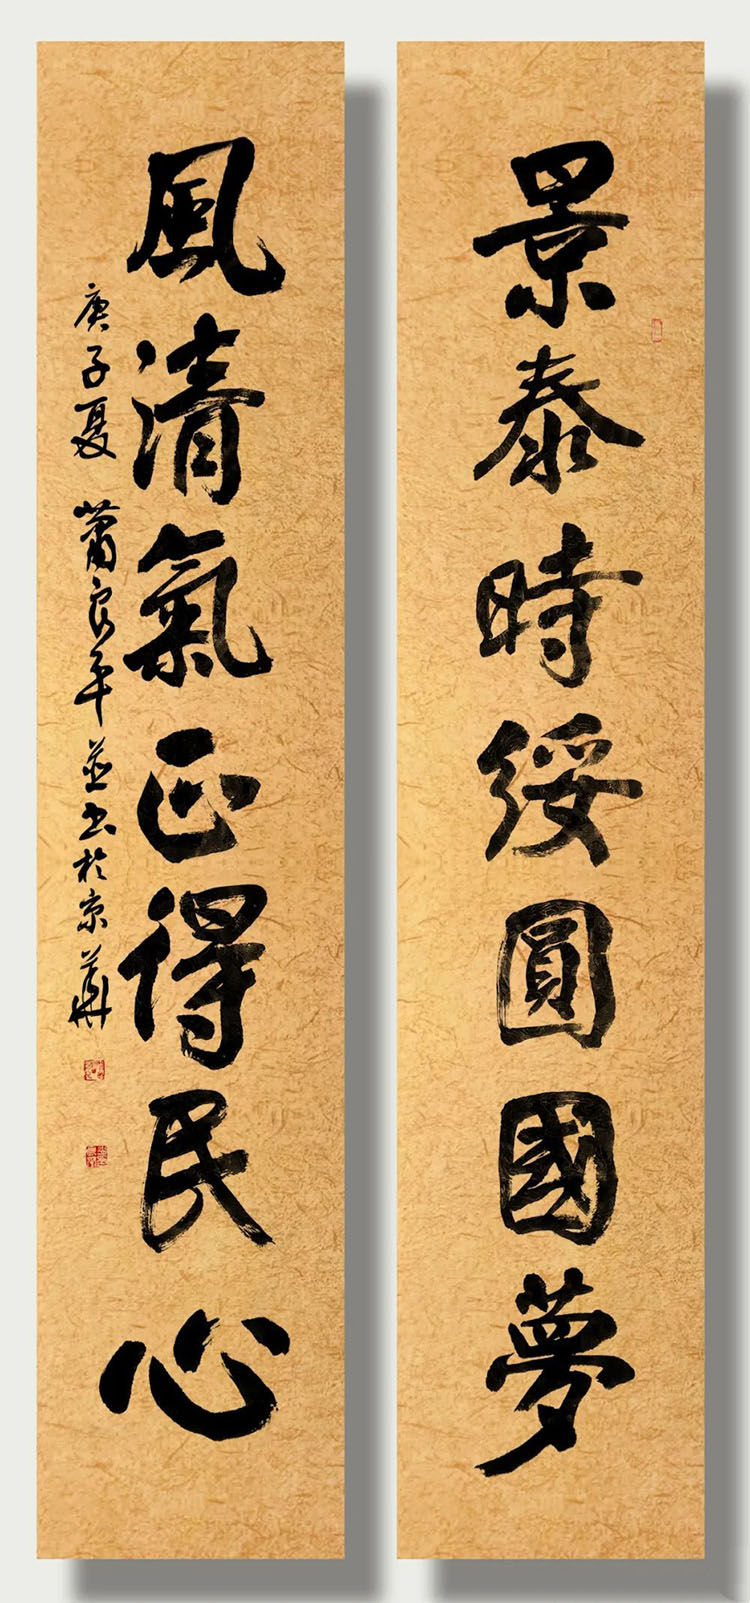 景泰時綏圓國夢
風清氣正得民心
庚子夏 蕭良平並書於京華